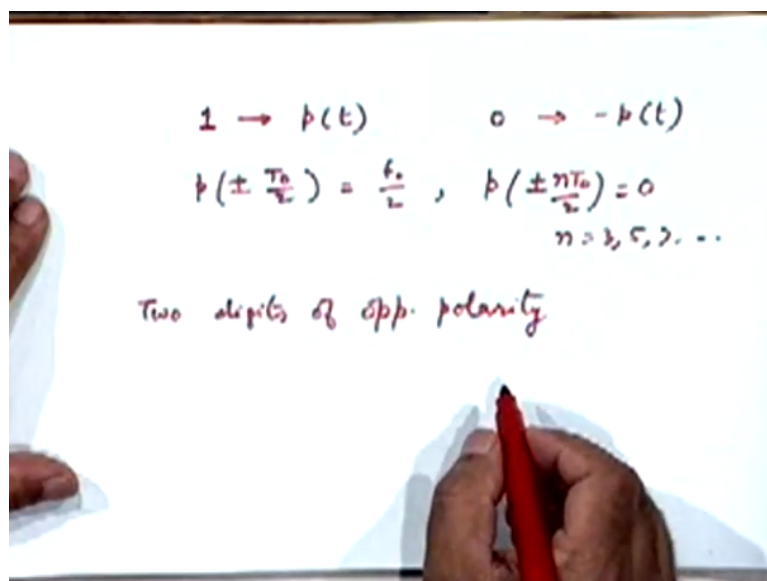 1 → p(t) 0 → -p(t)
p(± T₀/2) = f₀/2 , p(± nT₀/2) = 0
n = 3, 5, 7, ...
Two digits of opp. polarity